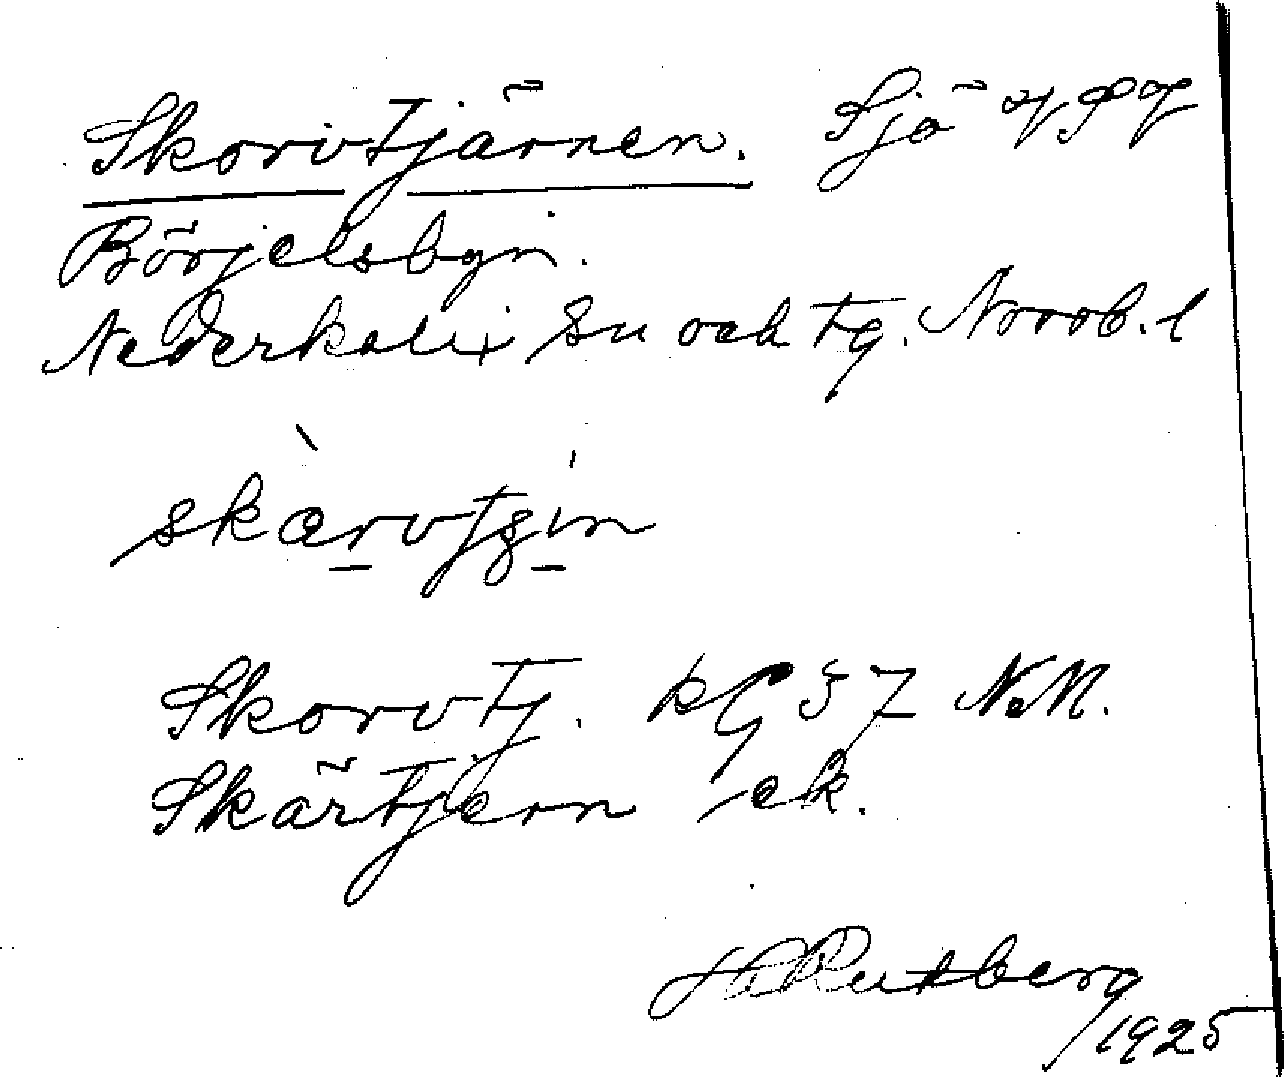 Skorvtjärnen. Sjö
Börjelsbyn.
Nederkalix sn och tg. Norrb. l
skærvtʒin
Skorvtj. kG 57 N.M.
Skärtjern ek.
H Rutberg
1925